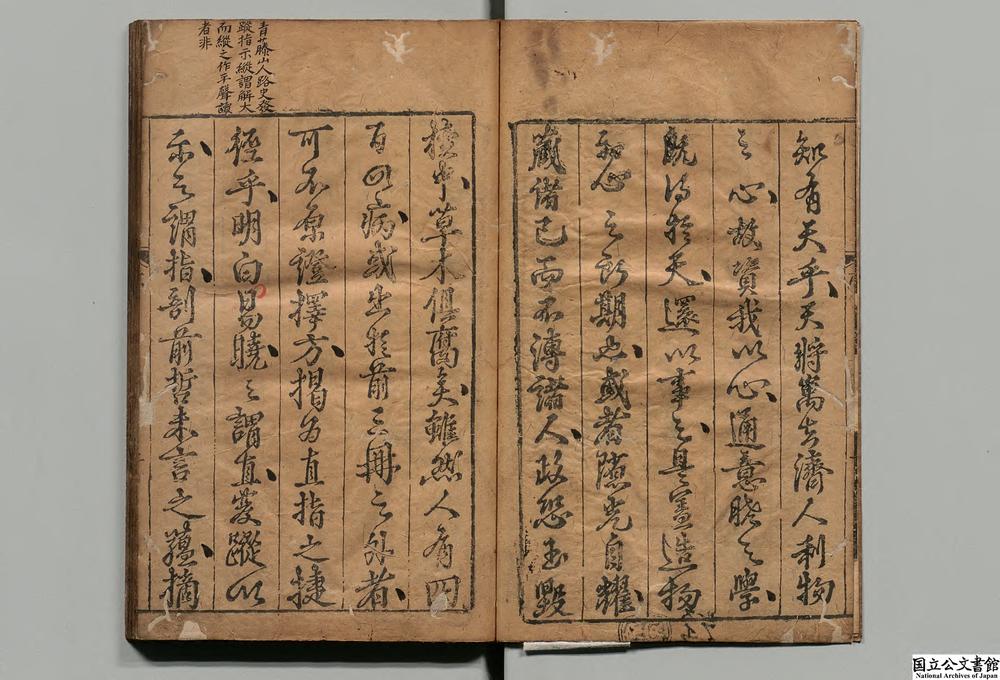 知有天乎天將寓吉濟人利物
之心故賚我以心通意曉之學
既得於天還以事之是蓋造物
初心之所期也或者隱光自耀
藏諸己而不溥諸人政恐玉毀
櫝中草木俱腐矣雖然人有四
百四病或出於前三冊之外者
可不原證擇方揭為直指之捷
徑乎明白易曉之謂直發蹤以
示之謂指剖前哲未言之蘊摘
青藤山人路史發
蹤指示縱謂解大
而縱之作平聲讀
者非
国立公文書館
National Archives of Japan